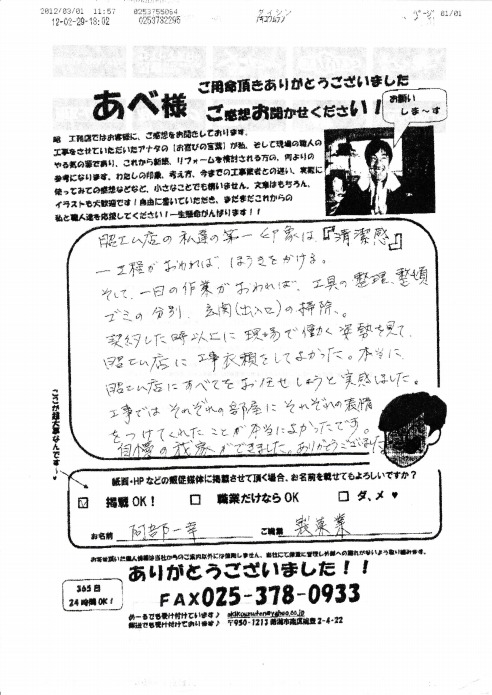 2012/03/01 11:57 0253755064
12-02-29-18:02 0253782295
01/01
あべ様
ご用命頂きありがとうございました
ご感想お聞かせください！
お願いしま〜す
昭 工務店ではお客様に、ご感想をお聞きしております。
工事をさせていただいたアナタの「お喜びの言葉」が私、そして現場の職人の
やる気の源であり、これから新築、リフォームを検討される方の、何よりの
参考になります。わたしの印象、考え方、今までの工事業者との違い、実際に
使ってみての感想などなど、小さなことでも構いません。文章はもちろん、
イラストも大歓迎です！自由に書いていただき、まだまだこれからの
私と職人達を応援してください！一生懸命がんばります！！
昭工ム店の私達の第一印象は、『清潔感』
一工程がおわれば、ほうきをかける。
そして、一日の作業がおわれば、工具の整理、整頓
ゴミの分別、玄関(出入口)の掃除。
契約した時以上に現場で働く姿勢を見て、
昭工ム店に工事依頼をしてよかった。本当に、
昭工ム店にすべてをお任せしようと実感しました。
工事ではそれぞれの部屋にそれぞれの表情
をつけてくれたことが本当によかったです。
自慢の我家ができました。ありがとうございました
紙面・HPなどの販促媒体に掲載させて頂く場合、お名前を載せてもよろしいですか？
☑ 掲載OK！ □ 職業だけならOK □ ダ、メ ♥
お名前 阿部一幸 ご職業 製菓業
ありがとうございました！！
365日
24時間OK！
FAX025-378-0933
めーるでも受け付けています♪
郵送でも受け付けております♪ 〒950-1213 新潟市南区能登2-4-22